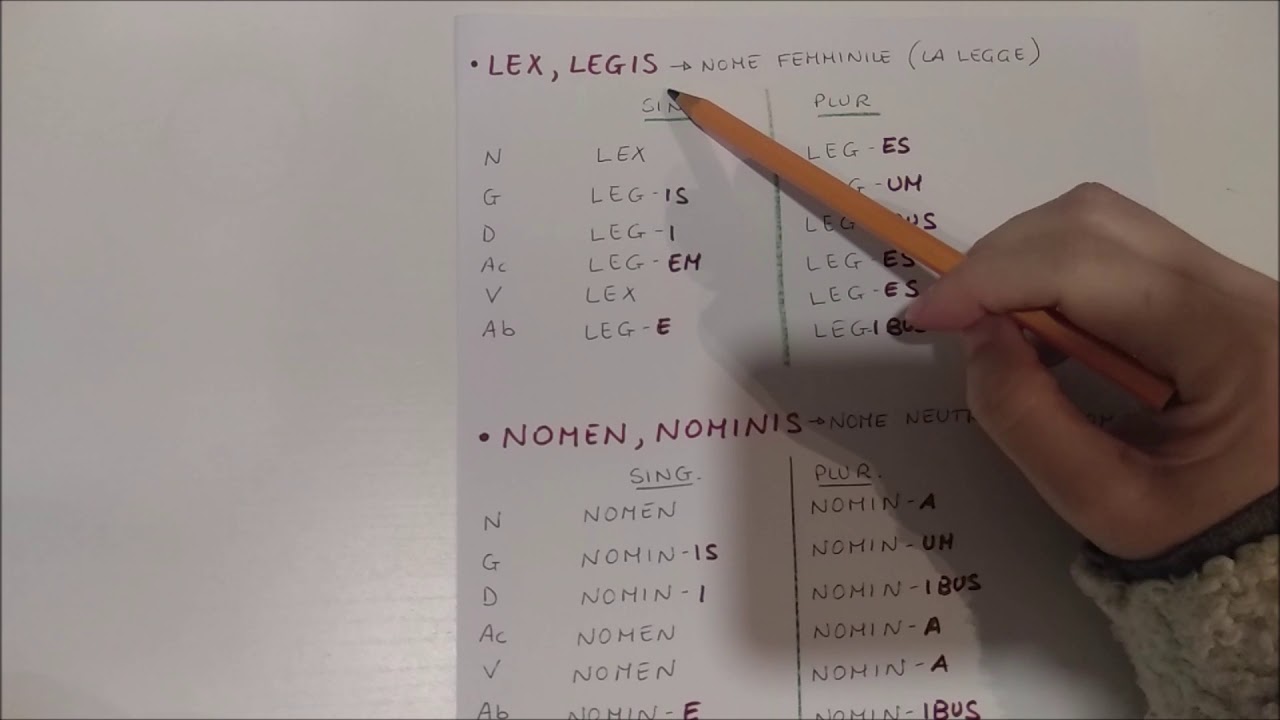 • LEX, LEGIS → NOME FEMMINILE (LA LEGGE)
SIN PLUR
N LEX LEG-ES
G LEG-IS G-UM
D LEG-I LEG- US
Ac LEG-EM LEG-ES
V LEX LEG-ES
Ab LEG-E LEG-IBUS
• NOMEN, NOMINIS → NOME NEUT
SING. PLUR.
N NOMEN NOMIN-A
G NOMIN-IS NOMIN-UM
D NOMIN-I NOMIN-IBUS
Ac NOMEN NOMIN-A
V NOMEN NOMIN-A
Ab NOMIN-E NOMIN-IBUS